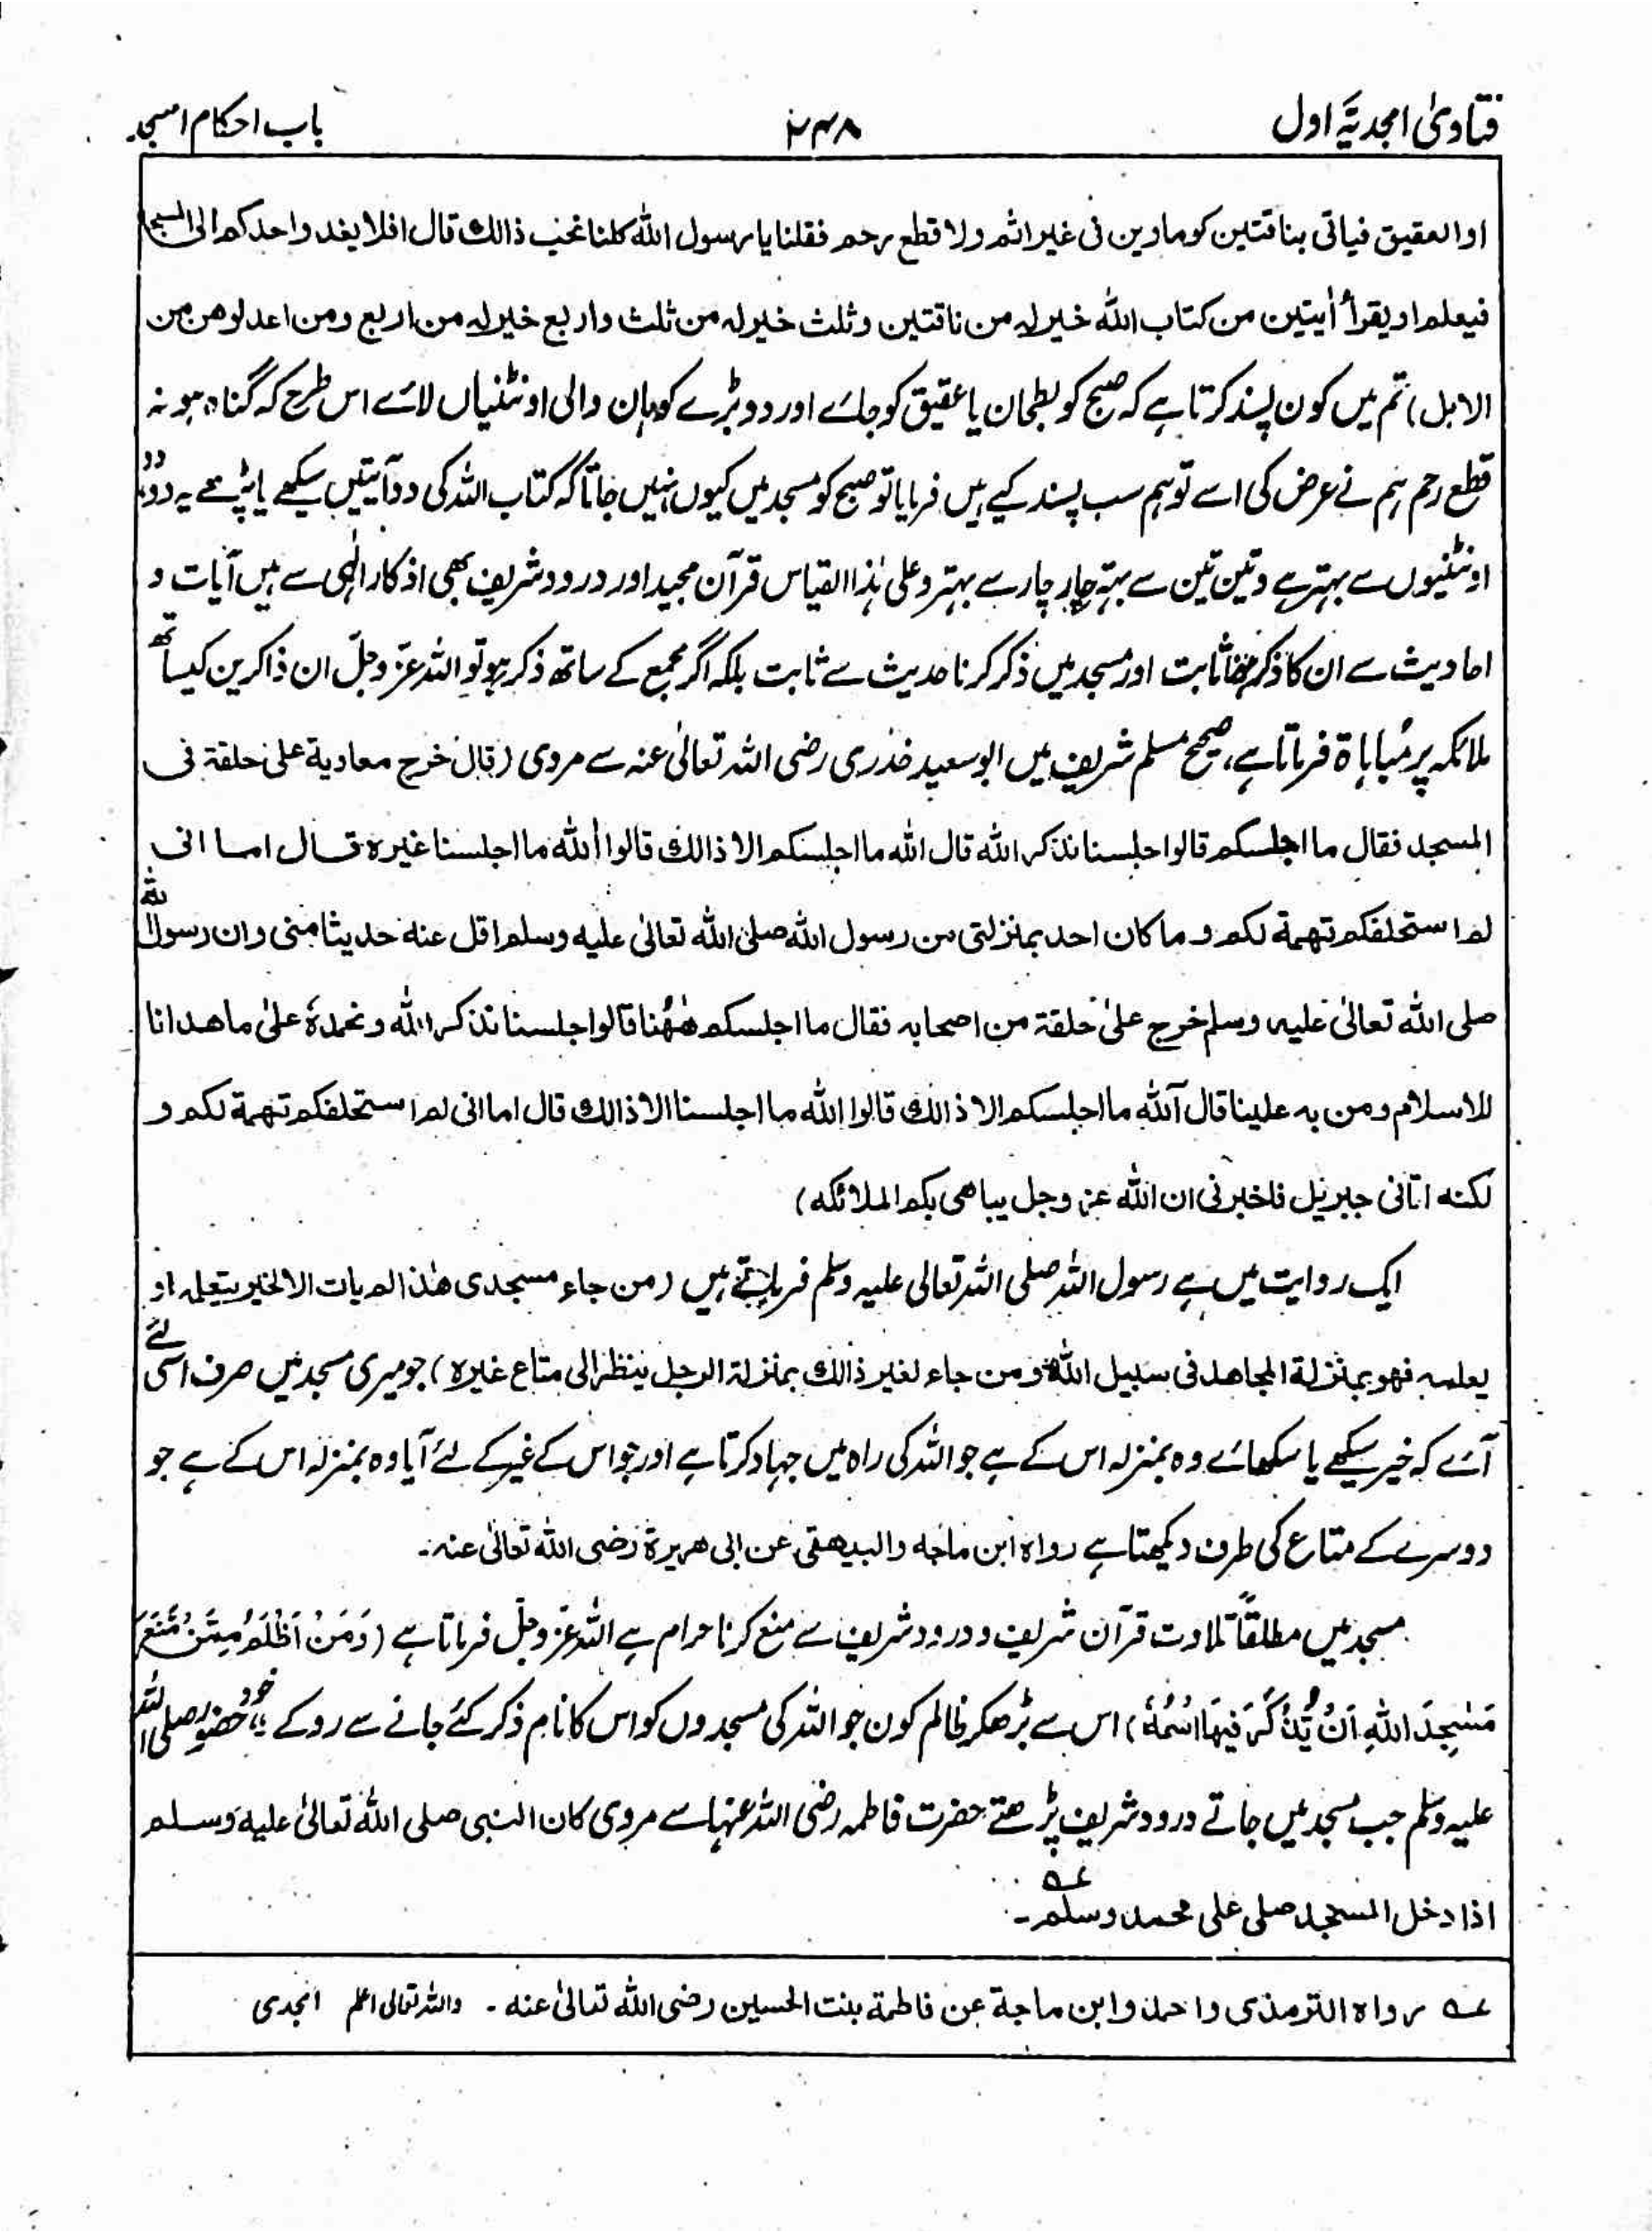 فتاویٰ امجدیہ اول ۲۴۸ باب احکام المسجد
او العقیق فیاتی بناقتین کوماوین فی غیر اثم ولا قطع رحم فقلنا یا رسول اللہ کلنا نحب ذالک قال افلا یغد واحدکم الی المسجد
فیعلم او یقرأ اٰیتین من کتاب اللہ خیر لہ من ناقتین وثلث خیر لہ من ثلث واربع خیر لہ من اربع ومن اعدادھن من
الابل) تم میں کون پسند کرتا ہے کہ صبح کو بطحان یا عقیق کو جائے اور دو بڑے کوہان والی اونٹنیاں لائے اس طرح کہ گناہ ہو نہ
قطع رحم ہم نے عرض کی اسے تو ہم سب پسند کیے ہیں فرمایا تو صبح کو مسجد میں کیوں نہیں جاتا کہ کتاب اللہ کی دو آیتیں سیکھے یا پڑھے یہ دو
اونٹنیوں سے بہتر ہے وتین تین سے بہتر چار چار سے بہتر وعلیٰ ہذا القیاس قرآن مجید اور درود شریف بھی اذکار الٰہی سے ہیں آیات و
احادیث سے ان کا ذکر ہونا ثابت اور مسجد میں ذکر کرنا حدیث سے ثابت بلکہ اگر مجمع کے ساتھ ذکر ہو تو اللہ عزّ وجلّ ان ذاکرین کیساتھ
ملائکہ پر مُباہاۃ فرماتا ہے، صحیح مسلم شریف میں ابوسعید خدری رضی اللہ تعالیٰ عنہ سے مروی (قال خرج معاویة علیٰ حلقة فی
المسجد فقال ما اجلسکم قالوا جلسنا نذکر اللہ قال اللہ ما اجلسکم الا ذالک قالوا أللہ ما اجلسنا غیرہ قال اما انی
لم استحلفکم تهمة لکم وما کان احد بمنزلتی من رسول اللہ صلی اللہ تعالیٰ علیہ وسلم اقل عنه حدیثا منی وان رسول اللہ
صلی اللہ تعالیٰ علیہ وسلم خرج علیٰ حلقة من اصحابہ فقال ما اجلسکم ھٰھُنا قالوا جلسنا نذکر اللہ ونحمدہٗ علیٰ ما ھدانا
للاسلام ومن بہ علینا قال آللہ ما اجلسکم الا ذالک قالوا اللہ ما اجلسنا الا ذالک قال اما انی لم استحلفکم تهمة لکم و
لکنه اتانی جبریل فاخبرنی ان اللہ عز وجل یباھی بکم الملائکه)
ایک روایت میں ہے رسول اللہ صلی اللہ تعالی علیہ وسلم فرماتے ہیں (من جاء مسجدی ھٰذا لم یات الا لخیر یتعلمہ او
یعلمہ فھو بمنزلة المجاھد فی سبیل اللہ ومن جاء لغیر ذالک بمنزلة الرجل ینظر الی متاع غیرہ) جو میری مسجد میں صرف اسی لئے
آئے کہ خیر سیکھے یا سکھائے وہ بمنزلہ اس کے ہے جو اللہ کی راہ میں جہاد کرتا ہے اور جو اس کے غیر کے لئے آیا وہ بمنزلہ اس کے ہے جو
دوسرے کے متاع کی طرف دیکھتا ہے رواہ ابن ماجہ والبیهقی عن ابی ھریرة رضی اللہ تعالیٰ عنہ۔
مسجد میں مطلقاً تلاوت قرآن شریف و درود شریف سے منع کرنا حرام ہے اللہ عزّ وجلّ فرماتا ہے (وَمَنْ اَظْلَمُ مِمَّنْ مَّنَعَ
مَسٰجِدَ اللہِ اَنْ یُّذْکَرَ فِیْهَا اسْمُهٗ) اس سے بڑھکر ظالم کون جو اللہ کی مسجدوں کو اس کا نام ذکر کئے جانے سے روکے خود حضور صلی اللہ
علیہ وسلم جب مسجد میں جاتے درود شریف پڑھتے حضرت فاطمہ رضی اللہ عنہا سے مروی کان النبی صلی اللہ تعالیٰ علیہ وسلم
اذا دخل المسجد صلی علی محمد وسلم عہ۔
عہ رواہ الترمذی واحمد وابن ماجة عن فاطمة بنت الحسین رضی اللہ تعالیٰ عنہ۔ واللہ تعالی اعلم امجدی